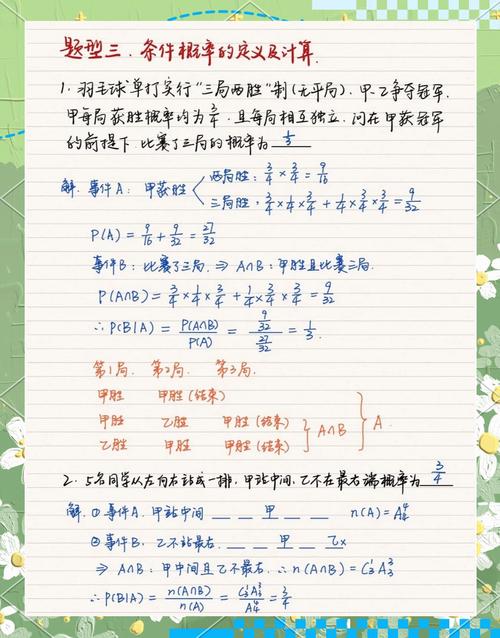 题型三.条件概率的定义及计算.
1.羽毛球单打实行"三局两胜"制(无平局).甲.乙争夺冠军.
甲每局获胜概率均为3/4.且每局相互独立.问在甲获冠军
的前提下.比赛了三局的概率为 1/3
解.事件A:甲获胜 两局胜:3/4×3/4=9/16
三局胜:3/4×1/4×3/4+1/4×3/4×3/4=9/32
P(A)=9/16+9/32=27/32
事件B:比赛了三局.⇒A∩B:甲胜且比赛三局.
P(A∩B)=3/4×1/4×3/4+1/4×3/4×3/4=9/32
∴P(B|A)=P(A∩B)/P(A)=(9/32)/(27/32)=1/3.
第1局. 第2局. 第3局.
甲胜 甲胜(结束)
甲胜 乙胜 甲胜(结束) } A∩B } A.
乙胜 甲胜 甲胜(结束)
2.5名同学从左向右站成一排,甲站中间.乙不在最右端概率为 3/4
解.①事件A.甲站中间 _ _ 甲 _ _ n(A)=A₄⁴
②事件B.乙不站最右. _ _ 甲 _ 乙×
⇒A∩B:甲中间且乙不最右.∴n(A∩B)=C₃¹A₃³
∴P(B|A)=n(A∩B)/n(A)=C₃¹A₃³/A₄⁴=3/4